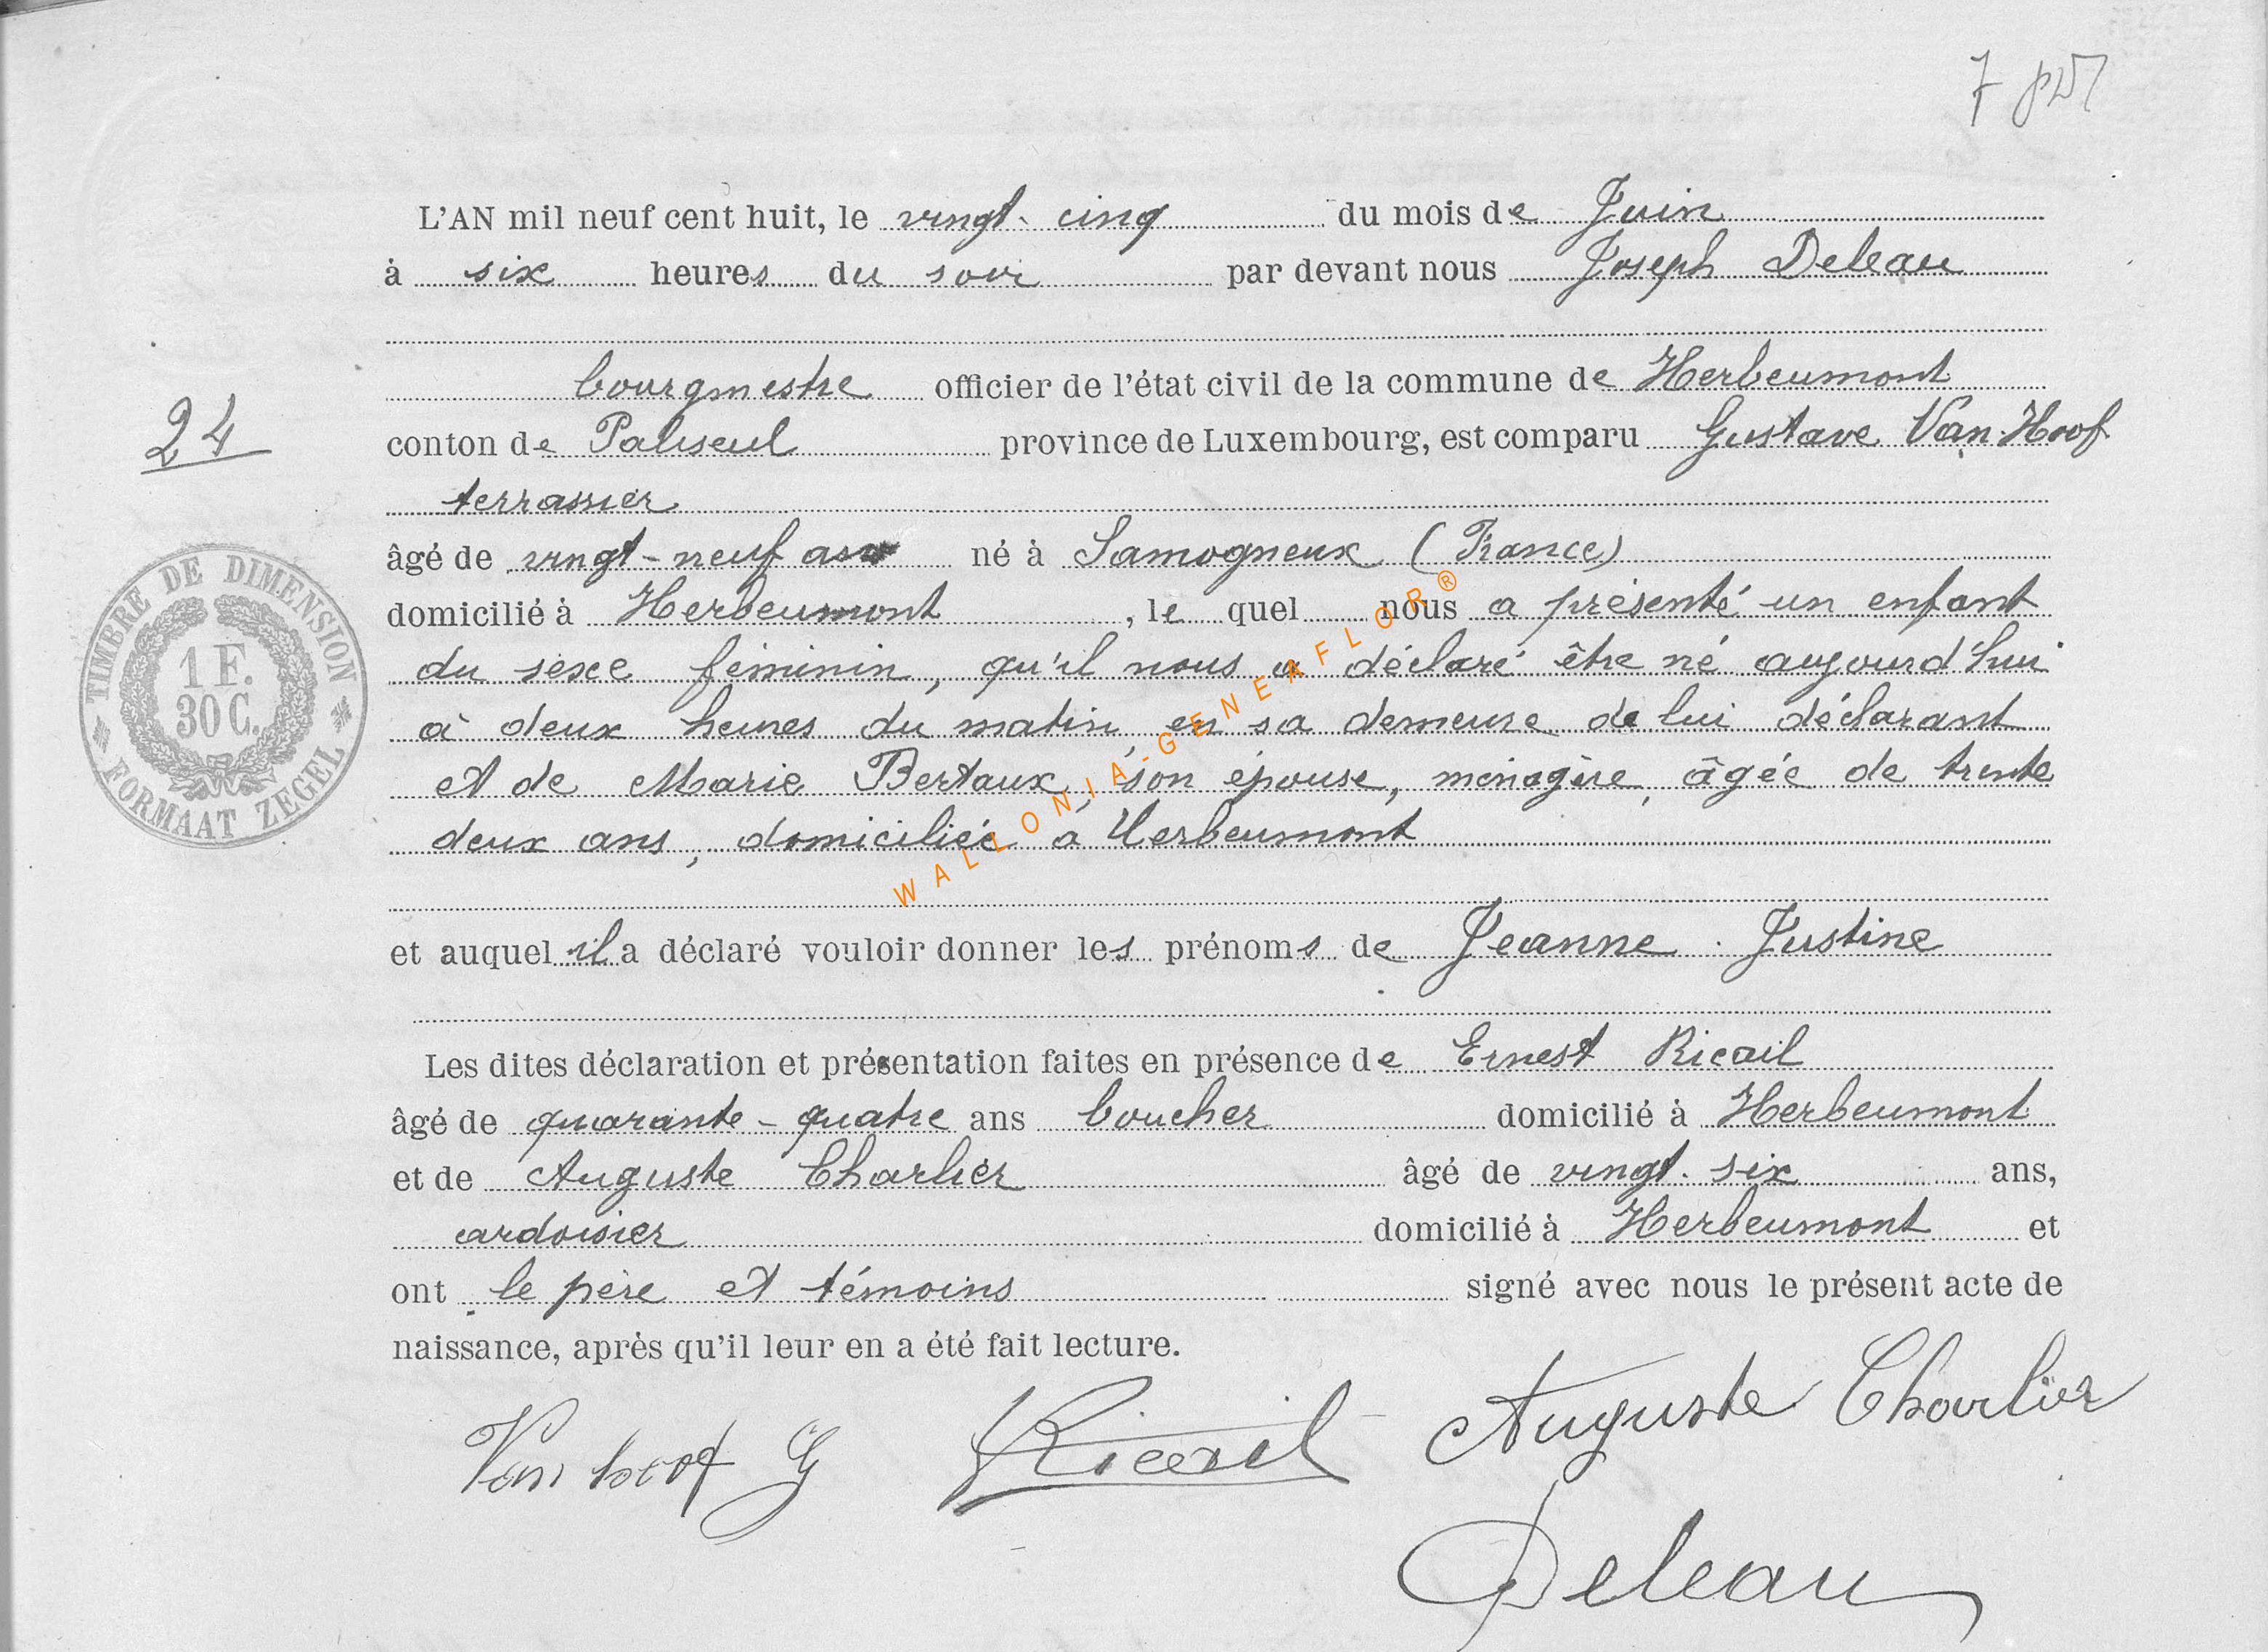 L'AN mil neuf cent huit, le vingt-cinq du mois de Juin
à six heures du soir par devant nous Joseph Deleau
bourgmestre officier de l'état civil de la commune de Herbeumont
24
conton de Paliseul province de Luxembourg, est comparu Gustave Van Hoof
terrassier
âgé de vingt-neuf ans né à Samogneux (France)
domicilié à Herbeumont, le quel nous a présenté un enfant
du sexe féminin, qu'il nous a déclaré être né aujourd'hui
à deux heures du matin, en sa demeure de lui déclarant
et de Marie Bertaux, son épouse, ménagère, âgée de trente
deux ans, domiciliée à Herbeumont
et auquel il a déclaré vouloir donner les prénoms de Jeanne Justine
Les dites déclaration et présentation faites en présence de Ernest Ricail
âgé de quarante-quatre ans boucher domicilié à Herbeumont
et de Auguste Charlier âgé de vingt-six ans,
ardoisier domicilié à Herbeumont et
ont le père et témoins signé avec nous le présent acte de
naissance, après qu'il leur en a été fait lecture.
Van hoof G Ricail Auguste Charlier
Deleau
TIMBRE DE DIMENSION
1 F.
30 C.
FORMAAT ZEGEL
WALLONIA-GENEAFLOR®